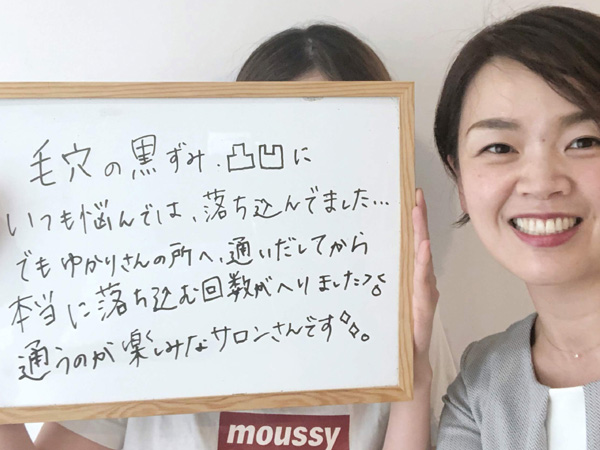 毛穴の黒ずみ.凸凹に
いつも悩んでは、落ち込んでました…
でもゆかりさんの所へ、通いだしてから
本当に落ち込む回数がへりました
通うのが楽しみなサロンさんです
moussy